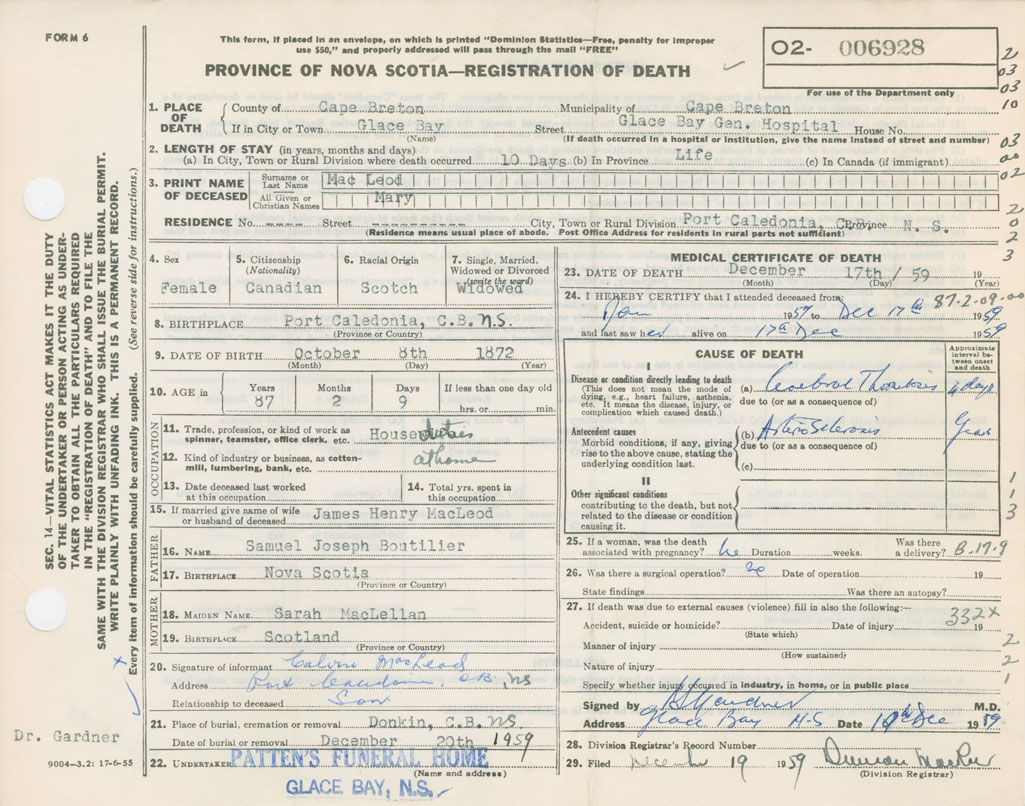 FORM 6
This form, if placed in an envelope, on which is printed "Dominion Statistics—Free, penalty for improper
use $50," and properly addressed will pass through the mail "FREE"
PROVINCE OF NOVA SCOTIA—REGISTRATION OF DEATH
02- 006928
For use of the Department only
SEC. 14—VITAL STATISTICS ACT MAKES IT THE DUTY
OF THE UNDERTAKER OR PERSON ACTING AS UNDER-
TAKER TO OBTAIN ALL THE PARTICULARS REQUIRED
IN THE "REGISTRATION OF DEATH" AND TO FILE THE
SAME WITH THE DIVISION REGISTRAR WHO SHALL ISSUE THE BURIAL PERMIT.
WRITE PLAINLY WITH UNFADING INK. THIS IS A PERMANENT RECORD.
Every item of information should be carefully supplied. (See reverse side for instructions.)
1. PLACE OF DEATH
County of Cape Breton Municipality of Cape Breton
If in City or Town Glace Bay Street Glace Bay Gen. Hospital House No.
(Name) (If death occurred in a hospital or institution, give the name instead of street and number)
2. LENGTH OF STAY (in years, months and days)
(a) In City, Town or Rural Division where death occurred 10 Days (b) In Province Life (c) In Canada (if immigrant)
3. PRINT NAME OF DECEASED
Surname or Last Name Mac Leod
All Given or Christian Names Mary
RESIDENCE No. ---- Street ---------- City, Town or Rural Division Port Caledonia, C.B. N. S.
(Residence means usual place of abode. Post Office Address for residents in rural parts not sufficient)
4. Sex Female
5. Citizenship (Nationality) Canadian
6. Racial Origin Scotch
7. Single, Married, Widowed or Divorced (write the word) Widowed
8. BIRTHPLACE Port Caledonia, C.B. N.S.
(Province or Country)
9. DATE OF BIRTH October 8th 1872
(Month) (Day) (Year)
10. AGE in Years 87 Months 2 Days 9 If less than one day old hrs. or min.
OCCUPATION
11. Trade, profession, or kind of work as spinner, teamster, office clerk, etc. House duties
12. Kind of industry or business, as cotton-mill, lumbering, bank, etc. at home
13. Date deceased last worked at this occupation
14. Total yrs. spent in this occupation
15. If married give name of wife or husband of deceased James Henry MacLeod
FATHER
16. NAME Samuel Joseph Boutilier
17. BIRTHPLACE Nova Scotia
(Province or Country)
MOTHER
18. MAIDEN NAME Sarah MacLellan
19. BIRTHPLACE Scotland
(Province or Country)
20. Signature of informant Calvin MacLeod
Address Port Caledonia, CB, NS
Relationship to deceased Son
21. Place of burial, cremation or removal Donkin, C.B. NS
Date of burial or removal December 20th 1959
22. UNDERTAKER PATTEN'S FUNERAL HOME
(Name and address)
GLACE BAY, N.S.
Dr. Gardner
9004-3.2: 17-6-55
MEDICAL CERTIFICATE OF DEATH
23. DATE OF DEATH December 17th / 59 19
(Month) (Day) (Year)
24. I HEREBY CERTIFY that I attended deceased from 87-2-09-00
1959 to Dec 17th 1959
and last saw her alive on 17th Dec 1959
CAUSE OF DEATH
Approximate interval between onset and death
I
Disease or condition directly leading to death
(This does not mean the mode of dying, e.g., heart failure, asthenia, etc. It means the disease, injury, or complication which caused death.)
(a) Cerebral Thrombosis 4 days
due to (or as a consequence of)
Antecedent causes
Morbid conditions, if any, giving rise to the above cause, stating the underlying condition last.
(b) Arterio Sclerosis
due to (or as a consequence of)
(c)
II
Other significant conditions contributing to the death, but not related to the disease or condition causing it.
25. If a woman, was the death associated with pregnancy? No Duration weeks. Was there a delivery? B-17-9
26. Was there a surgical operation? No Date of operation 19
State findings Was there an autopsy?
27. If death was due to external causes (violence) fill in also the following:— 332X
Accident, suicide or homicide? Date of injury 19
(State which)
Manner of injury
(How sustained)
Nature of injury
Specify whether injury occurred in industry, in home, or in public place
Signed by Gardner M.D.
Address Glace Bay N.S Date Dec 1959
28. Division Registrar's Record Number
29. Filed December 19 1959 Duncan
(Division Registrar)
2
03
03
10
03
00
02
2
0
2
3
1
1
3
2
2
1